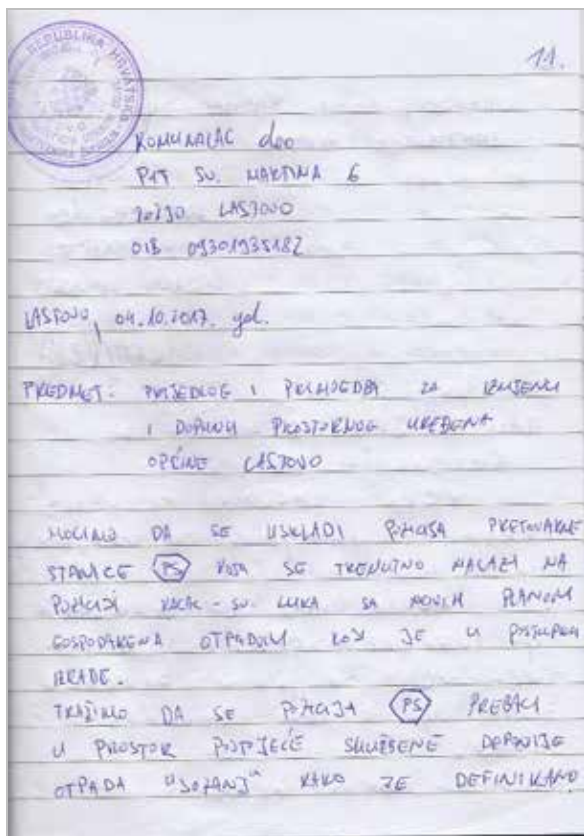 REPUBLIKA HRVATSKA
11.
KOMUNALAC doo
PUT SV. MARTINA 6
20290 LASTOVO
OIB 09301935182
LASTOVO, 04.10.2017. god.
PREDMET: PRIJEDLOG I PRIMJEDBA ZA IZMJENU
I DOPUNU PROSTORNOG UREĐENA
OPĆINE LASTOVO
MOLIMO DA SE USKLADI POZICIJA PRETOVARNE
STANICE PS KOJA SE TRENUTNO NALAZI NA
POZICIJI KACAL - SV. LUKA SA NOVIM PLANOM
GOSPODARENA OTPADOM KOJI JE U POSTUPKU
IZRADE.
TRAŽIMO DA SE POZICIJA PS PREBACI
U PROSTOR POSTJEĆE SLUŽBENE DEPONIJE
OTPADA "SOZANJ" KAKO JE DEFINIRANO